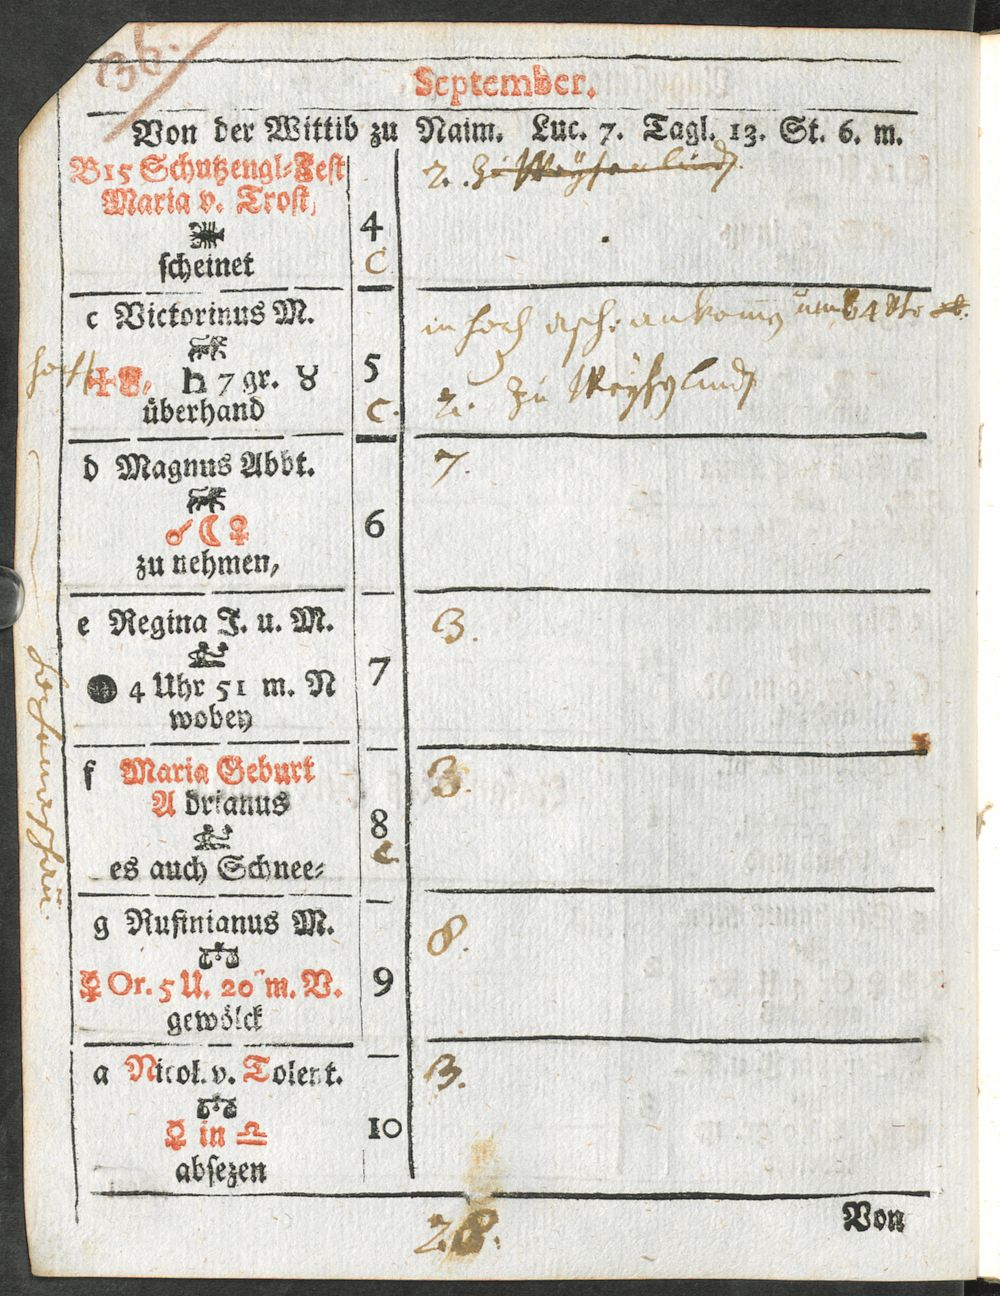 36.
September.
Von der Wittib zu Naim. Luc. 7. Tagl. 13. St. 6. m.
B 15 Schutzengl-Fest
Maria v. Trost,
scheinet
4
C
2. zu
c Victorinus M.
♄ 7 gr. ♉
überhand
5
C.
2. zu
d Magnus Abbt.
☌ ☾ ♀
zu nehmen,
6
7.
e Regina J. u. M.
● 4 Uhr 51 m. N
wobey
7
3.
f Maria Geburt
Adrianus
es auch Schnee-
8
C
3.
g Rufinianus M.
☿ Or. 5 U. 20 m. V.
gewölck
9
8.
a Nicol. v. Tolent.
♀ in ♎
absezen
10
3.
28.
Von